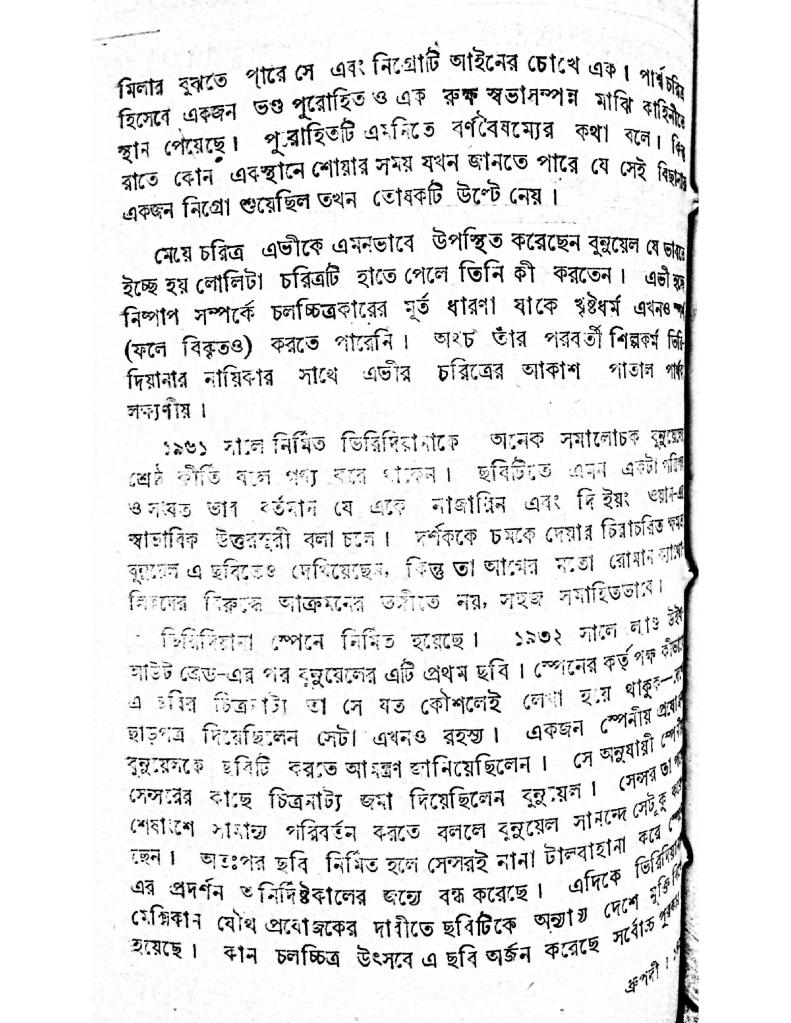 মিলার বুঝতে পারে সে এবং নিগ্রোটি আইনের চোখে এক। পার্শ্ব চরিত্র
হিসেবে একজন ভণ্ড পুরোহিত ও এক রুক্ষ স্বভাসম্পন্ন মাঝি কাহিনীতে
স্থান পেয়েছে। পুরোহিতটি এমনিতে বর্ণবৈষম্যের কথা বলে। কিন্তু
রাতে কোন একস্থানে শোয়ার সময় যখন জানতে পারে যে সেই বিছানায়
একজন নিগ্রো শুয়েছিল তখন তোষকটি উল্টে নেয়।
মেয়ে চরিত্র এভীকে এমনভাবে উপস্থিত করেছেন বুনুয়েল যে ভাবতে
ইচ্ছে হয় লোলিটা চরিত্রটি হাতে পেলে তিনি কী করতেন। এভী হচ্ছে
নিষ্পাপ সম্পর্কে চলচ্চিত্রকারের মূর্ত ধারণা যাকে খৃষ্টধর্ম এখনও স্পর্শ
(ফলে বিকৃতও) করতে পারেনি। অথচ তাঁর পরবর্তী শিল্পকর্ম ভিরি-
দিয়ানার নায়িকার সাথে এভীর চরিত্রের আকাশ পাতাল পার্থক্য
লক্ষ্যণীয়।
১৯৬১ সালে নির্মিত ভিরিদিয়ানাকে অনেক সমালোচক বুনুয়েলের
শ্রেষ্ঠ কীর্তি বলে গণ্য করে থাকেন। ছবিটিতে এমন একটা
ও সংযত ভাব বর্তমান যে একে নাজারিন এবং দি ইয়ং ওয়ান-এর
স্বাভাবিক উত্তরসূরী বলা চলে। দর্শককে চমকে দেয়ার চিরাচরিত ক্ষমতা
বুনুয়েল এ ছবিতেও দেখিয়েছেন, কিন্তু তা আগের মতো রোমান ক্যাথো
লিকদের বিরুদ্ধে আক্রমনের ভঙ্গীতে নয়, সহজ সমাহিতভাবে।
ভিরিদিয়ানা স্পেনে নির্মিত হয়েছে। ১৯৩২ সালে ল্যাণ্ড উইদ
আউট ব্রেড-এর পর বুনুয়েলের এটি প্রথম ছবি। স্পেনের কর্তৃপক্ষ কীভাবে
এ ছবির চিত্রনাট্য তা সে যত কৌশলেই লেখা হয়ে থাকুক—
ছাড়পত্র দিয়েছিলেন সেটা এখনও রহস্য। একজন স্পেনীয় প্রযোজক
বুনুয়েলকে ছবিটি করতে আমন্ত্রণ জানিয়েছিলেন। সে অনুযায়ী স্পেনীয়
সেন্সরের কাছে চিত্রনাট্য জমা দিয়েছিলেন বুনুয়েল। সেন্সর তা
শেষাংশে সামান্য পরিবর্তন করতে বললে বুনুয়েল সানন্দে সেটুকু
ছেন। অতঃপর ছবি নির্মিত হলে সেন্সরই নানা টালবাহানা করে
এর প্রদর্শন অনির্দিষ্টকালের জন্যে বন্ধ করেছে। এদিকে ভিরিদিয়ানার
মেক্সিকান যৌথ প্রযোজকের দাবীতে ছবিটিকে অন্যান্য দেশে মুক্তি
হয়েছে। কান চলচ্চিত্র উৎসবে এ ছবি অর্জন করেছে সর্বোচ্চ পুরস্কার
ধ্রুপদী।